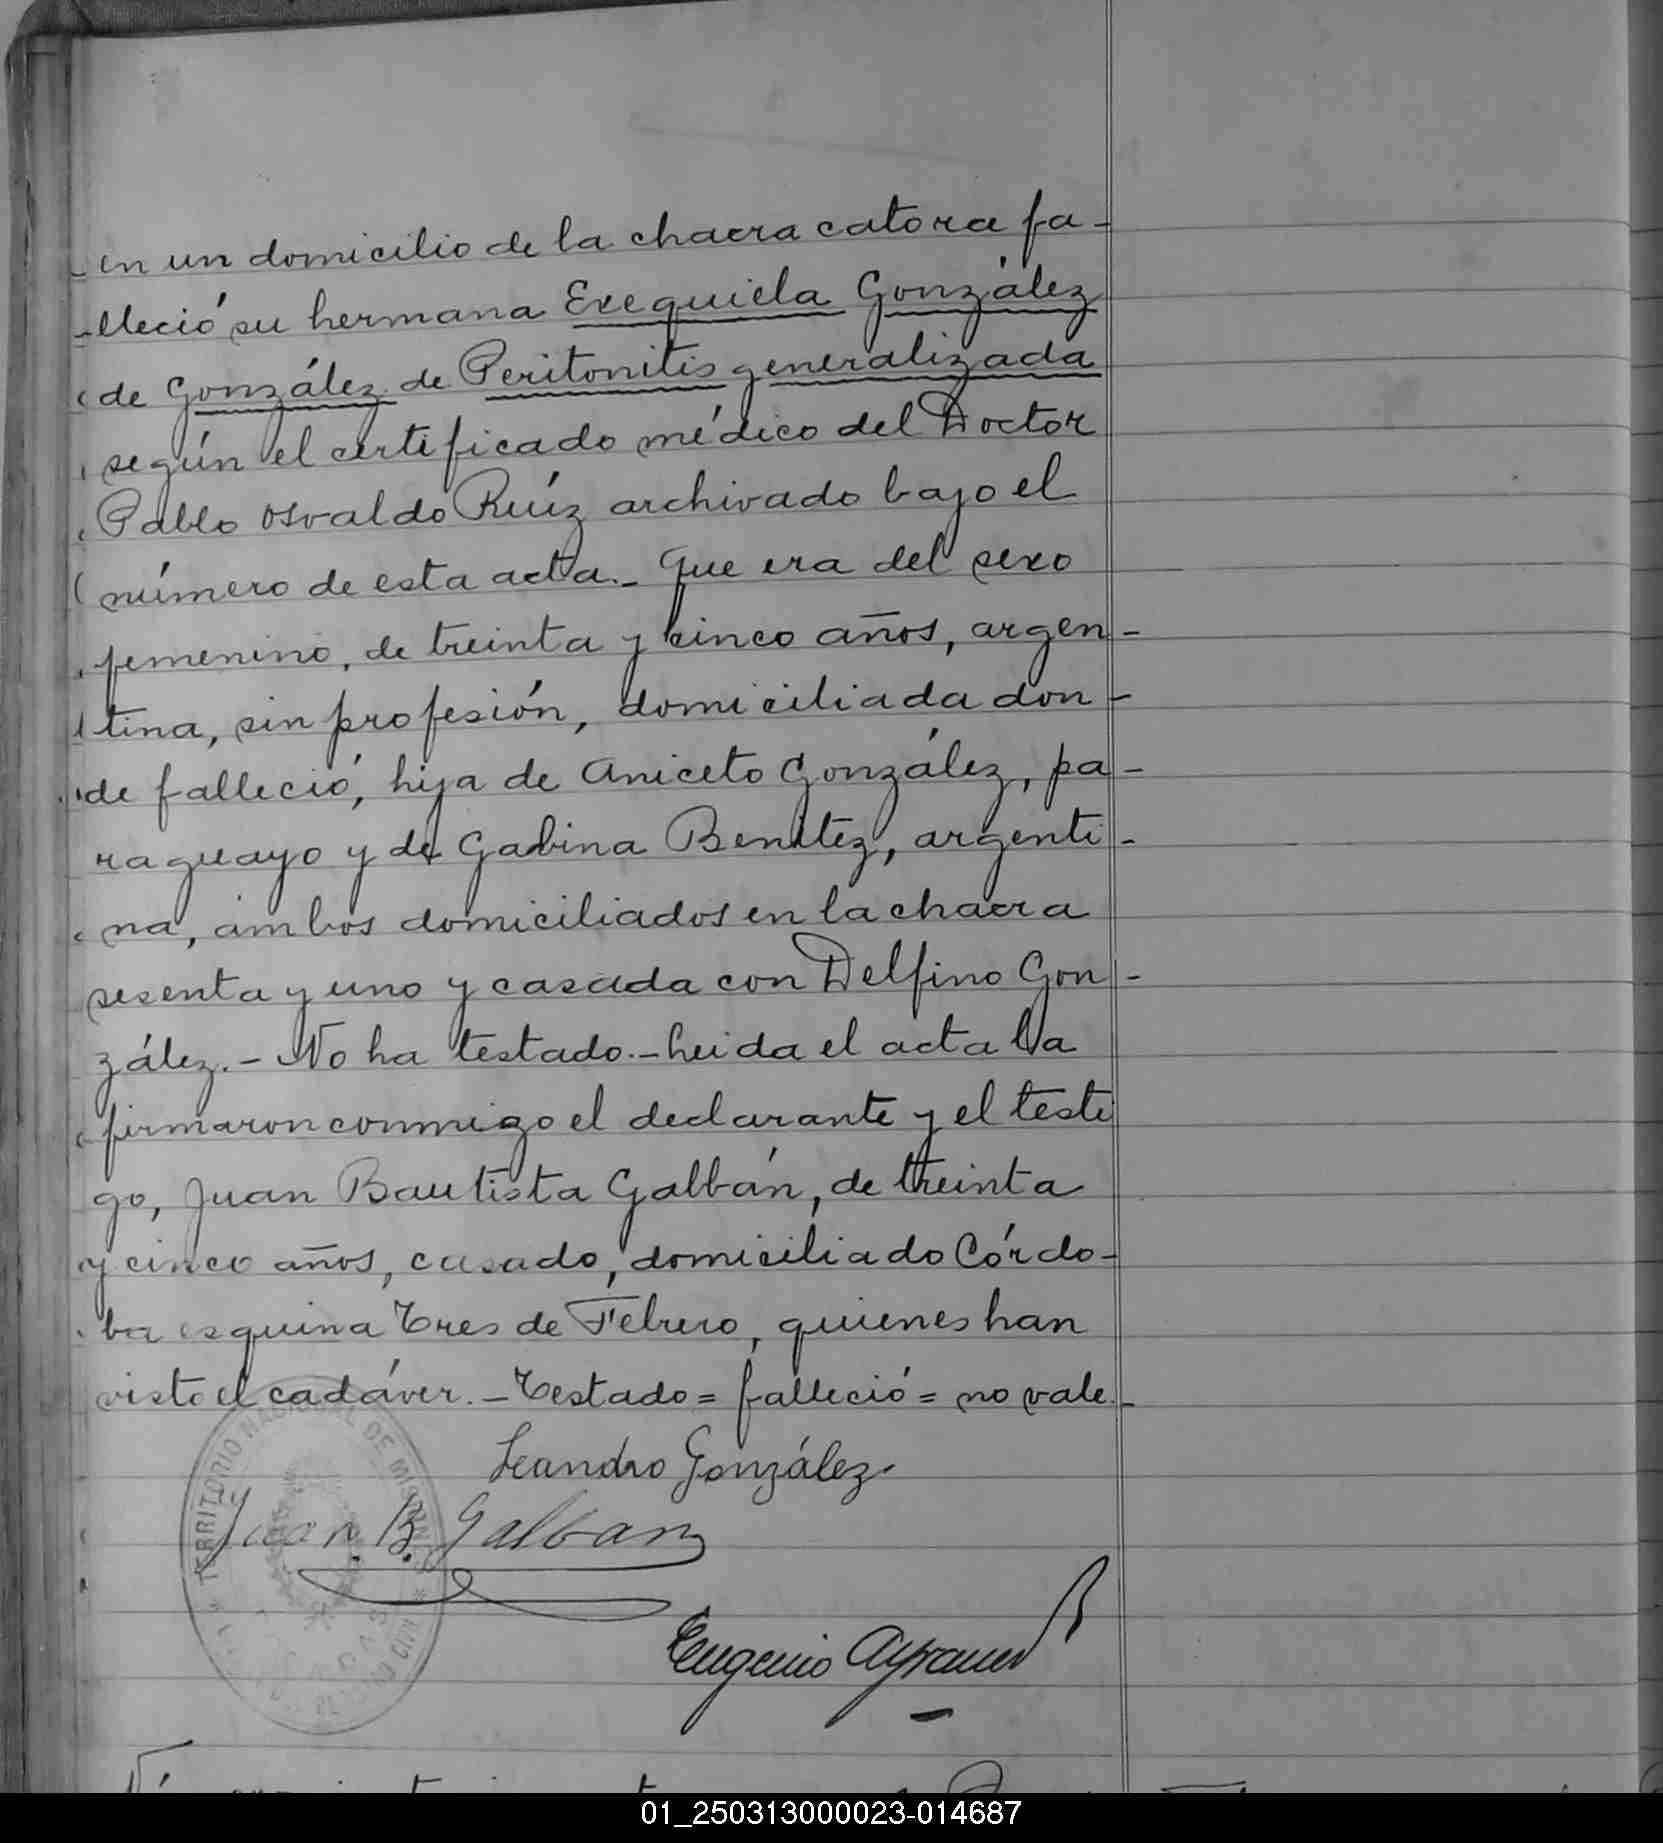 en un domicilio de la chacra catorce fa-
-lleció su hermana Exequiela González
de González de Peritonitis generalizada
según el certificado médico del Doctor
Pablo Osvaldo Ruíz archivado bajo el
número de esta acta.- Que era del sexo
femenino, de treinta y cinco años, argen-
tina, sin profesión, domiciliada don-
de falleció, hija de Aniceto González, pa-
raguayo y de Gabina Benítez, argenti-
na, ambos domiciliados en la chacra
sesenta y uno y casada con Delfino Gon-
zález.- No ha testado.- Leida el acta la
firmaron conmigo el declarante y el testi
go, Juan Bautista Galbán, de treinta
y cinco años, casado, domiciliado Córdo-
ba esquina Tres de Febrero, quienes han
visto el cadáver.- Testado = falleció = no vale.-
Leandro González
Juan B. Galban
Eugenio
TERRITORIO NACIONAL DE MISIONES
01_250313000023-014687